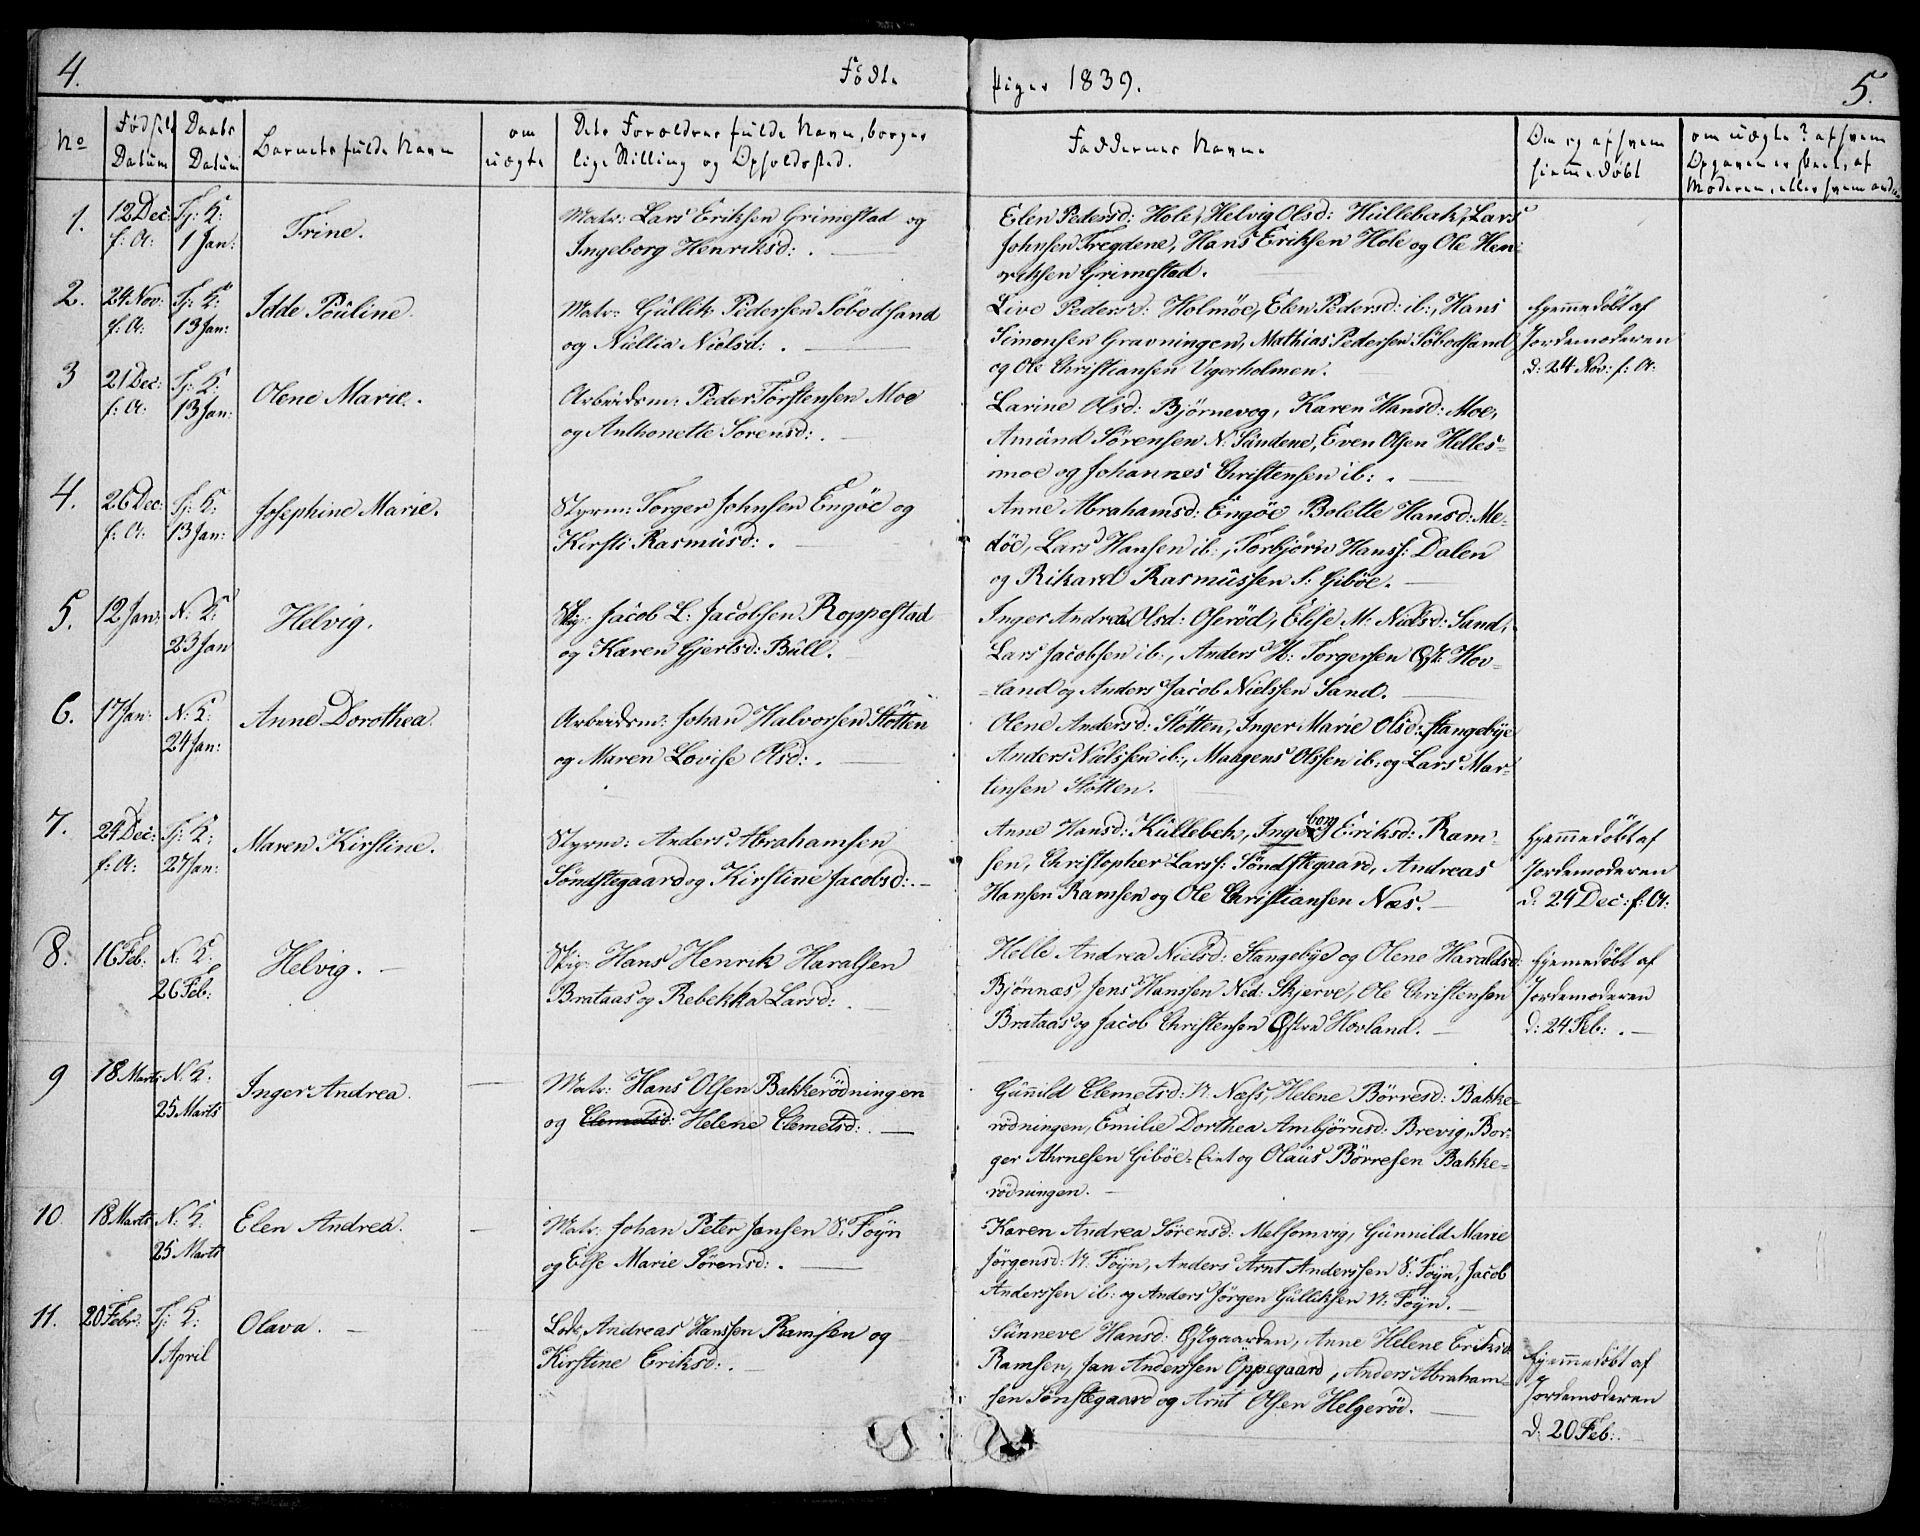 4. Fødte Piger 1839. 5.
No Fødsels Datum Daabs Datum Barnets fulde Navn om uægte Dets Forældres fulde Navn, borger-
lige Stilling og Opholdssted. Faddernes Navne Om og af hvem hjemmedøbt om uægte? af hvem Opgaven er skeet, af Moderen, eller hvem anden
1. 12 Dec: f: A: Tj: K: 1 Jan: Trine. Matr: Lars Eriksen Grimestad og
Ingeborg Henriksd: .
Elen Pedersd: Hole, Helvig Olsd: Hüllebak, Lars
Johnsen Tregdene, Hans Eriksen Hole og Ole Hen-
riksen Grimestad.
2. 24 Nov: f: A: Tj: K: 13 Jan: Idde Pouline. Matr: Güllik Pedersen Söbodsand
og Nillia Nielsd: .
Live Pedersd: Holmöe, Elen Pedersd: ib:, Hans
Simonsen Gravningen, Mathias Pedersen Söbodsand
og Ole Christiansen Vigerholmen.
Hjemmedøbt af
Jordemoderen
d: 24 Nov: f: A:
3 21 Dec: f: A: Tj: K: 13 Jan: Olene Marie. Arbeidsm: Peder Torstensen Moe
og Anthonette Sorensd: .
Larine Olsd: Bjørnevog, Karen Hansd: Moe,
Amünd Sørensen N: Sündene, Even Olsen Helles-
moe og Johannes Christensen ib: .
4. 26 Dec: f: A: Tj: K: 13 Jan: Josephine Marie. Styrm: Torger Johnsen Engöe og
Kirsti Rasmüsd: .
Anne Abrahamsd: Engöe, Bolette Hansd: Me-
döe, Lars Hansen ib:, Torbjörn Hanss: Dalen
og Rikard Rasmüssen S: Giböe.
5. 12 Jan: N: K: 23 Jan Helvig. Skip: Jacob L: Jacobsen Roppestad
og Karen Gjertsd: Büll.
Inger Andrea Olsd: Oseröd, Elise M: Nielsd: Sand,
Lars Jacobsen ib:, Anders H: Torgersen Øst: Hov-
land og Anders Jacob Nielssen Sand.
6. 17 Jan: N: K: 24 Jan: Anne Dorothea. Arbeidsm: Johan Halvorsen Stötten
og Maren Lovise Olsd: .
Olene Andersd: Stötten, Inger Marie Olsd: Stangebye
Anders Nielssen ib:, Maagens Olssen ib: og Lars Mar-
tinsen Stötten.
7. 24 Dec: f: A: Tj: K: 27 Jan: Maren Kirstine. Styrm: Anders Abrahamsen
Söndstegaard og Kirstine Jacobsd: .
Anne Hansd: Küllebek, Ingeborg Eriksd: Ram-
sen, Christopher Larss: Söndstegaard, Andreas
Hansen Ramsen og Ole Christiansen Næs.
Hjemmedøbt af
Jordemoderen
d: 24 Dec: f: A:
8. 16 Feb: N: K: 26 Feb: Helvig. Skip: Hans Henrik Haralsen
Brataas og Rebekka Larsd: .
Helle Andrea Nielsd: Stangebye og Olene Haraldsd:
Bjönnæs, Jens Hanssen Ned: Skjerve, Ole Christensen
Brataas og Jacob Christensen Østre Hovland.
Hjemedöbt af
Jordemoderen
d: 24 Feb: .
9 18 Marts N. K: 25 Marts Inger Andrea. Matr: Hans Olsen Bakkerödningen
og Clemetsd: Helene Clemetsd: .
Günnild Clemetsd: N: Næss, Helene Börresd: Bakke-
rödningen, Emilie Dorthea Ambjörnsd: Brevig, Bor-
ger Ahrnesen Giböe og Olaüs Börresen Bakke-
rödningen.
10 18 Marts N: K: 25 Marts Elen Andrea. Matr: Johan Peter Jansen S: Foyn
og Else Marie Sörensd: .
Karen Andrea Sörensd: Melsomvig, Günnild Marie
Jörgensd: N: Föyn, Anders Arnt Anderssen S: Föyn, Jacob
Anderssen ib: og Anders Jörgen Gülliksen N: Foyn.
11. 20 Febr: Tj: K: 1 April Olava. Lods, Andreas Hanssen Ramsen og
Kirstine Eriksd: .
Sünneve Hansd: Østgaarden, Anne Helene Eriksd:
Ramsen, Jan Anderssen Oppegaard, Anders Abraham-
sen Sönstegaard og Arnt Olsen Helgeröd.
Hjemmedöbt af
Jordemoderen
d: 20 Feb: .